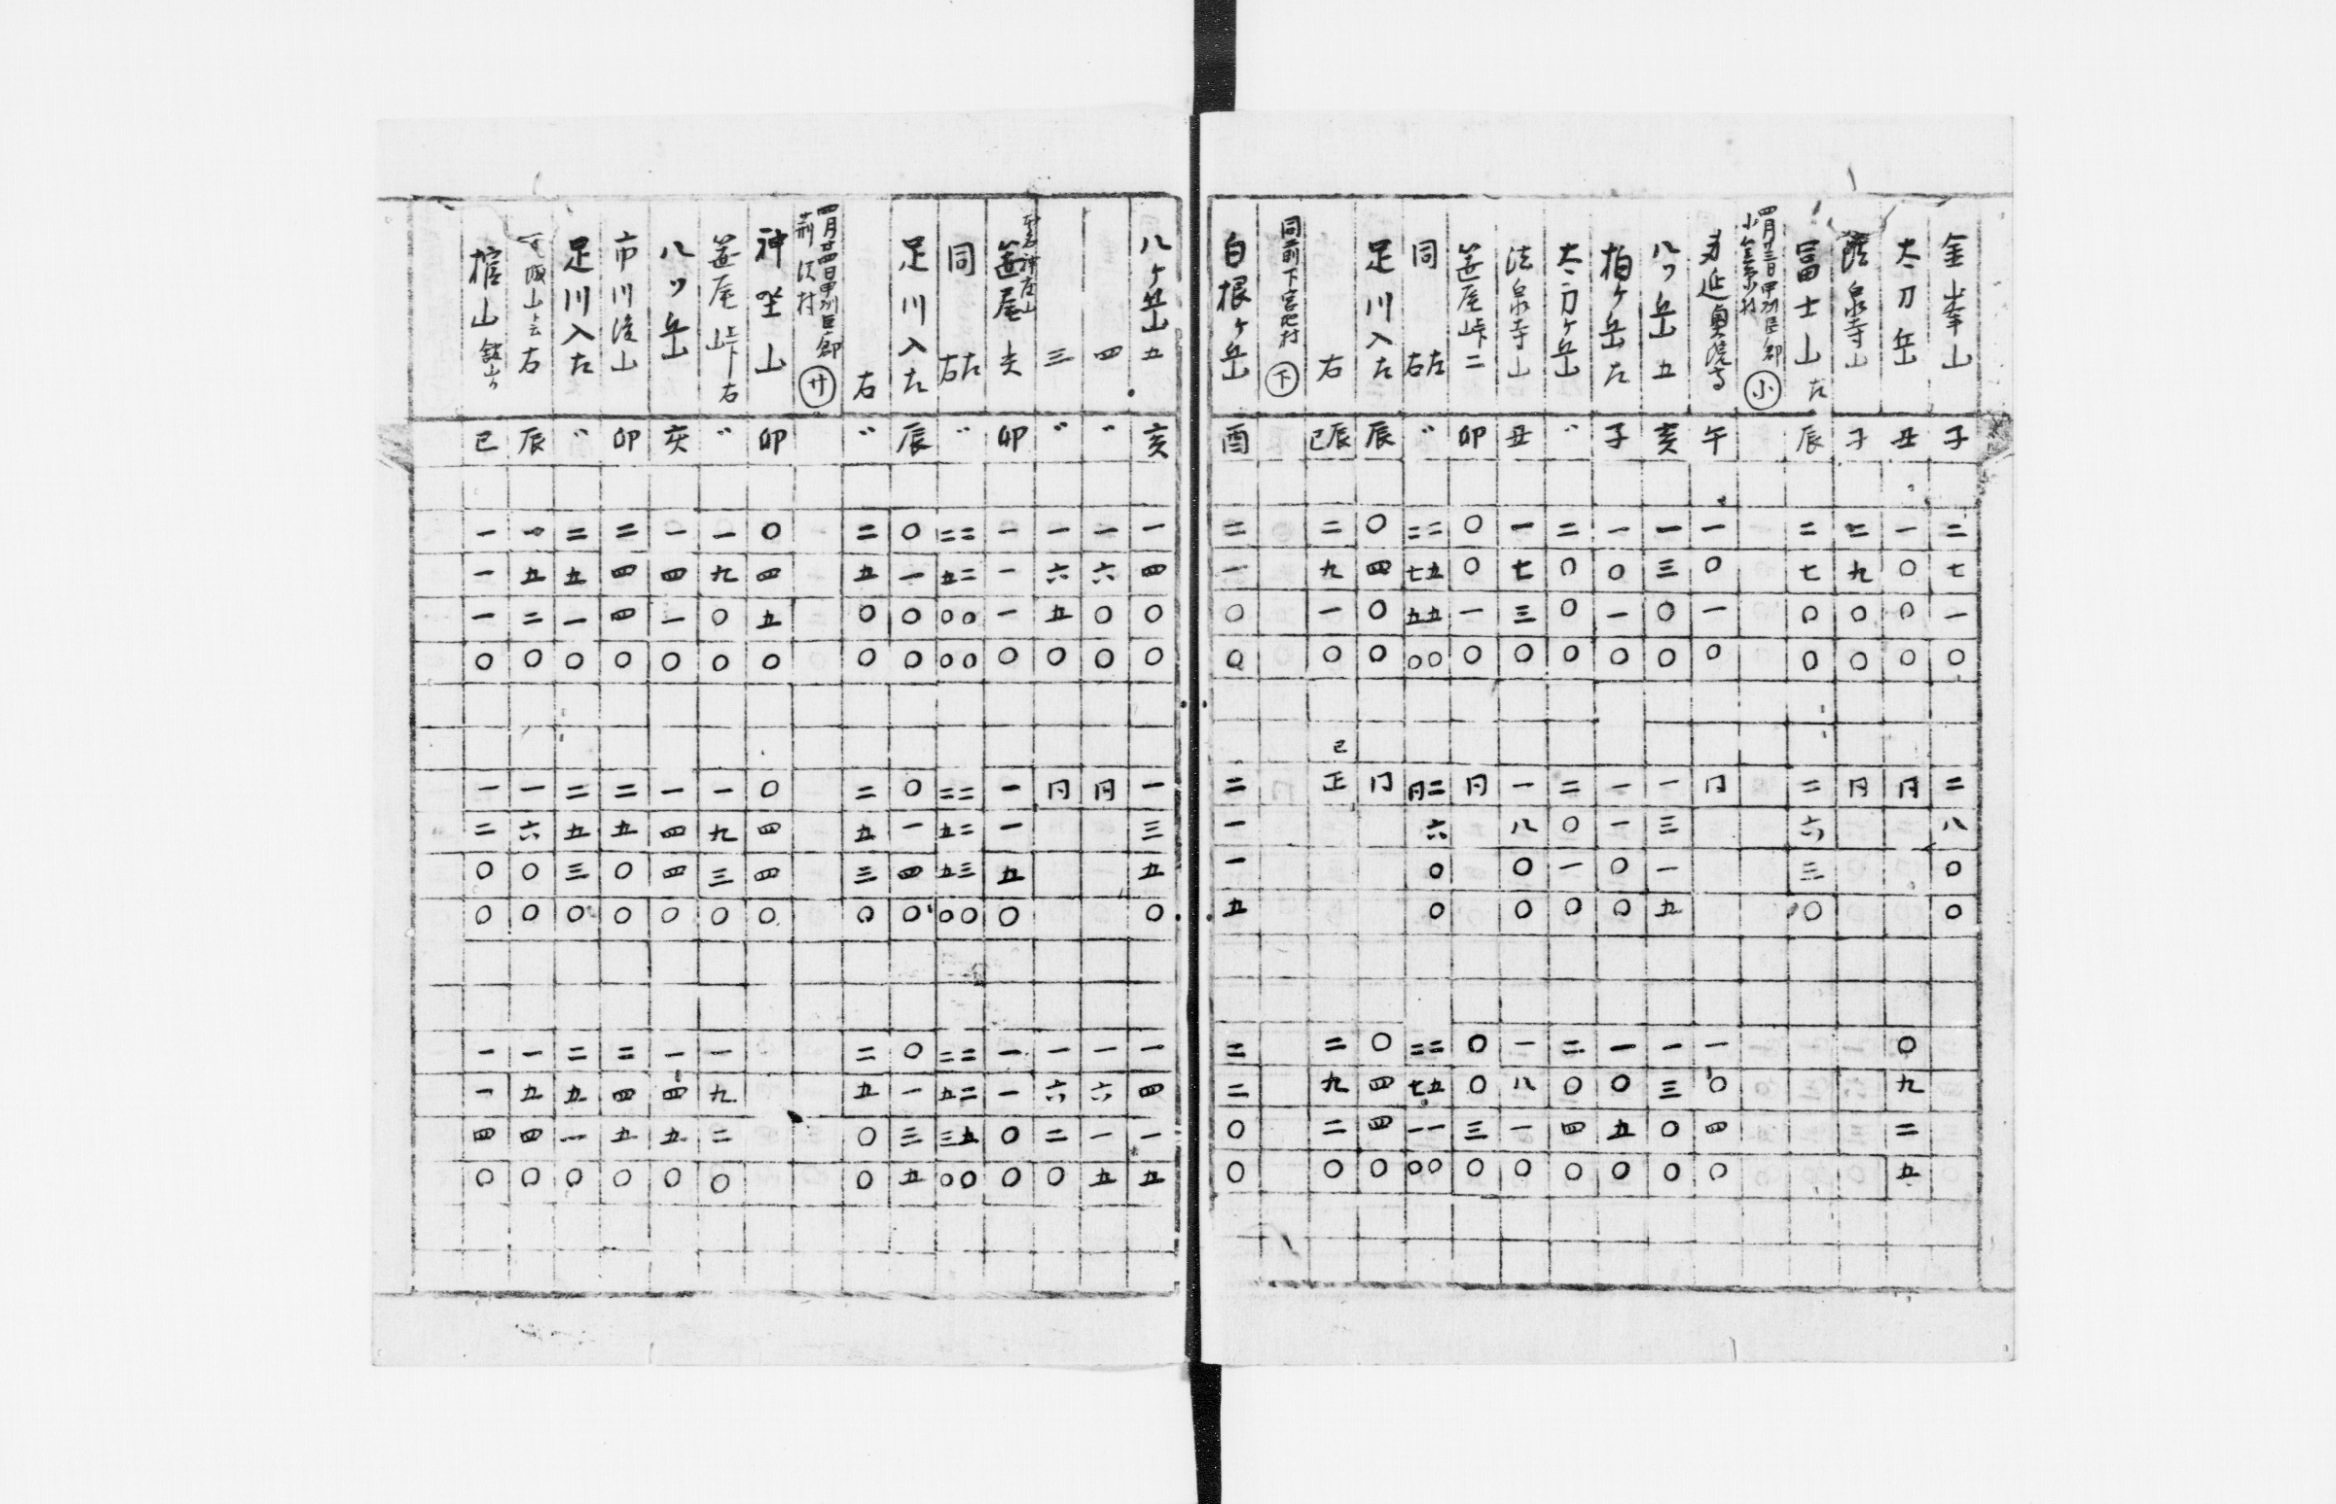 金峯山 子 二七一〇 二八〇〇
太刀岳 丑 一〇〇〇 同 〇九二五
法泉寺山 子 二九〇〇 同
冨士山左 辰 二七〇〇 二六三〇
四月廿三日甲州巨摩郡 小
身延奥院 午 一〇一〇 同 一〇四〇
八ツ岳五 亥 一三〇〇 一三一五 一三〇〇
柏ヶ岳左 子 一〇一〇 一一〇〇 一〇五〇
太刀ヶ岳 〃 二〇〇〇 二〇一〇 二〇四〇
法泉寺山 丑 一七三〇 一八〇〇 一八一〇
笛尾峠二 卯 〇〇一〇 同 〇〇三〇
同左 〃 二五五〇 二六〇〇 二五一〇
右 二七五〇 同 二七一〇
足川入左 辰 〇四〇〇 同 〇四四〇
右 辰巳 二九一〇 巳正 二九二〇
同前下宮地村 下
白根ヶ岳 酉 二一〇〇 二一一五 二二〇〇
八ヶ岳五 亥 一四〇〇 一三五〇 一四一五
四 〃 一六〇〇 同 一六一五
三 〃 一六五〇 同 一六二〇
笛尾 卯 一一一〇 一一五〇 一一〇〇
同左 〃 二二〇〇 二二三〇 二二五〇
右 二五〇〇 二五五〇 二五三〇
足川入左 辰 〇一〇〇 〇一四〇 〇一三五
右 〃 二五〇〇 二五三〇 二五〇〇
四月廿四日甲州巨摩郡
荊沢村 廾
神座山 卯 〇四五〇 〇四四〇
笛尾峠右 〃 一九〇〇 一九三〇 一九二〇
八ツ岳 亥 一四一〇 一四四〇 一四五〇
市川後山 卯 二四四〇 二五〇〇 二四五〇
足川入左 〃 二五一〇 二五三〇 二五一〇
右 辰 一五二〇 一六〇〇 一五四〇
山 巳 一一一〇 一二〇〇 一一四〇